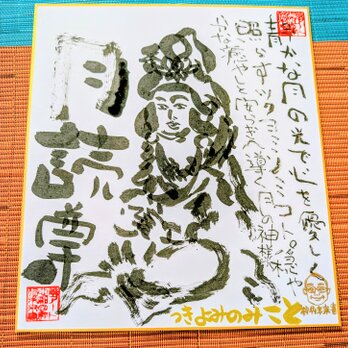 静かな月の光で心を優しく
照らすツクヨミノミコト。穏や
かな癒やしと安らぎへ導く月の神様
月読尊
つきよみのみこと